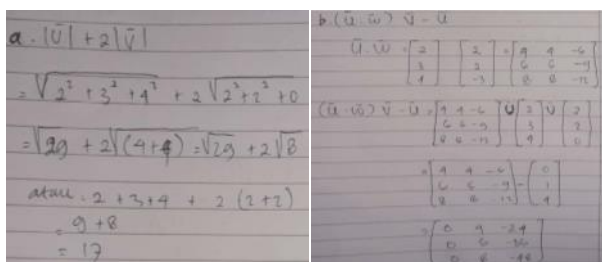 a. |Ū| + 2|V̄|
= √2² + 3² + 4² + 2 √2² + 2² + 0
= √29 + 2√(4+4) = √29 + 2√8
atau . 2 + 3 + 4 + 2 (2+2)
= 9 + 8
= 17
b. (ū.w̄) v̄ - ū
ū.w̄ = [2 3 4] [2 2 -3] = [4 4 -6
6 6 -9
8 8 -12]
(ū-w̄) v̄ - ū = [4 4 -6
6 6 -9
8 8 -12]
= [4 4 -6
6 6 -9
8 8 -12] - [0
1
4]
= [0 4 -24
0 6 -36
0 8 -48]